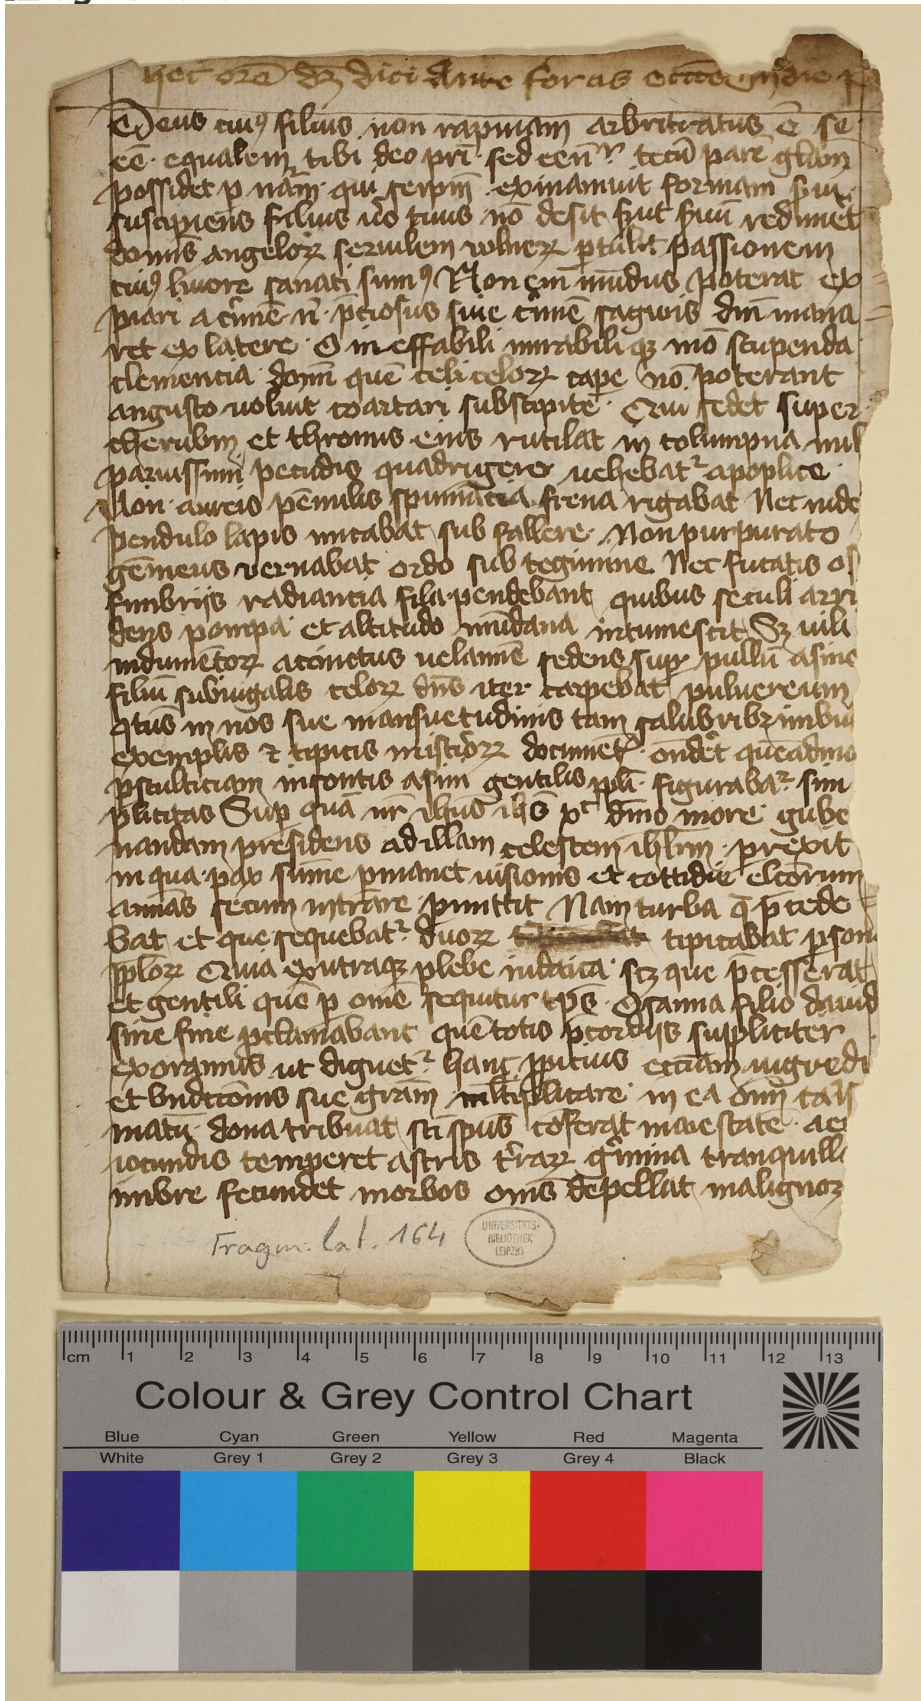 hec orõ dʒ dici ante foras eccẽ in die
Deus cuiꝰ filius non rapinam arbritratus ẽ se
eẽ equalem tibi deo pr̃i sed tecũ parẽ gl̃am
possidet p nãm qui semp̃m exinaniuit formam
suscipiens filius ũo tuus nõ desit redimẽt
domĩs angeloꝝ seruilem ptulit passionem
cuiꝰ liuore sanati sumꝰ Non em̃ mũdus poterat ex
piari a c̃mĩe n̄ p̃ciosus siue c̃mĩe sãguĩs dn̄i mana
ret ex latere O ineffabili mirabiliqꝫ mõ stupenda
clemencia domĩ quẽ celi celoꝝ cape nõ poterant
angusto uoluit coartari sub stipite Qui sedet super
cherubin et thronus eius rutilat in columpna nub
paruissimi pecudis quadrigero uehebatᷣ apoplice
Non aureis pẽnulis spumãcia frena rigabat Nec nide
pendulo lapis micabat sub fallere Non purpurato
gẽmeus vernabat ordo sub tegimine Nec fucatis
fimbrijs radiancia fila pendebant quibus seculi arri
dens pompa et altitudo mũdana intumescit Sꝫ uili
indumẽtoꝝ accinctus uelamĩe sedens sup pullũ asine
filiũ subiugalis celoꝝ dñs iter carpebat puluereum
ꝓtus in nos sue mansuetudinis tam salubribꝫ imbui
exemplis ⁊ tipicis mist̃ioꝝ documẽt ondẽt quẽadmo
p stulticiam insontis asini gentilis ppl̃i figurabaᷣ sim
plicitas Sup quã nr̃ ihũs ihs̃ xp̃c diũo more gube
nandam presidens ad illam celestem ihl̃m prexit
in qua pax sũme pmanet uisionis et cottidie el̃corum
animas secum intrare pmittit Nam turba q̄ p̃cede
bat et que sequebatᷣ duoꝝ tipicabat pson
pp̃loꝝ Quia ex utraqꝫ plebe iudaica scꝫ que p̃cesserat
et gentili quẽ p om̃e sequitur tp̃s Osanna filio dauid
sine fine ꝓclamabant quẽ totis p̃cordijs supliciter
exoramus ut dignetᷣ hanc ꝓpicius ecc̃iam ingredi
et vnctiõnis sue grãm ml̃tiplicare in ea om̃i cari
matũ dona tribuat sc̃i sp̃us cõferat maiestatẽ aer
iocundis temperet astris t̃raꝝ g̃mina tranquill
imbre fecundet morbos om̃s depellat malignoꝝ
Fragm. lat. 164
UNIVERSITÄTS-
BIBLIOTHEK
LEIPZIG
cm 1 2 3 4 5 6 7 8 9 10 11 12 13
Colour & Grey Control Chart
Blue Cyan Green Yellow Red Magenta
White Grey 1 Grey 2 Grey 3 Grey 4 Black